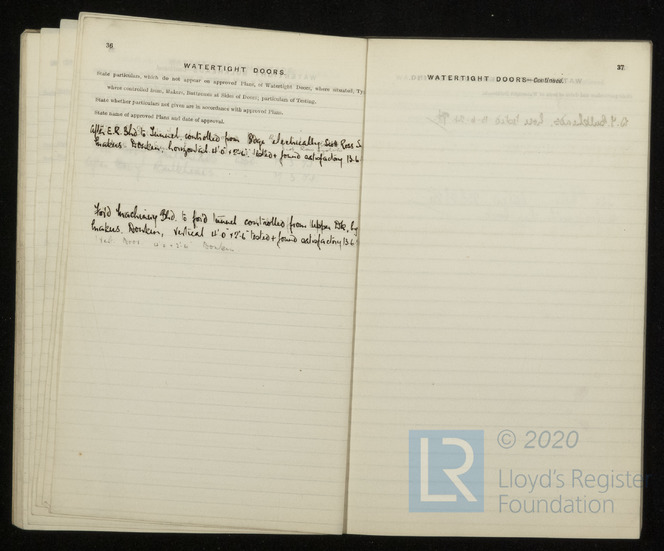 36
WATERTIGHT DOORS.
State particulars, which do not appear on approved Plans, of Watertight Doors, where situated, Ty
where controlled from, Makers, Buttresses at Sides of Doors, particulars of Testing.
State whether particulars not given are in accordance with approved Plans.
State name of approved Plans and date of approval.
After E.R. Bhd to Tunnel, controlled from electrically Ross
makers. horizontal 4'0" × tested + found satisfactory 13.6
Ford Machinery Bhd. to ford tunnel controlled from Upper Dk, by
makers. vertical 4'0" × 2'6" tested + found satisfactory 13.6
37
WATERTIGHT DOORS—Continued.
© 2020
LR
Lloyd's Register
Foundation